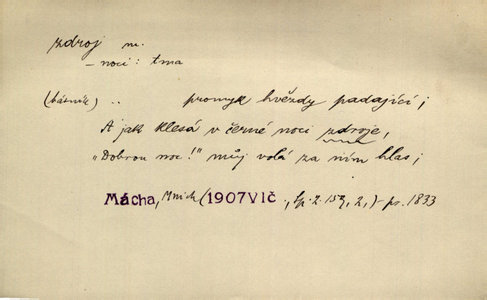 zdroj m.
– noci: tma
(básník) .. promyk hvězdy padající;
A jak klesá v černé noci zdroje,
„Dobrou noc!" můj volá za ním hlas;
Mácha, Mnich (1907Vlč., Sp. 2. 159, 2,) – pr. 1833